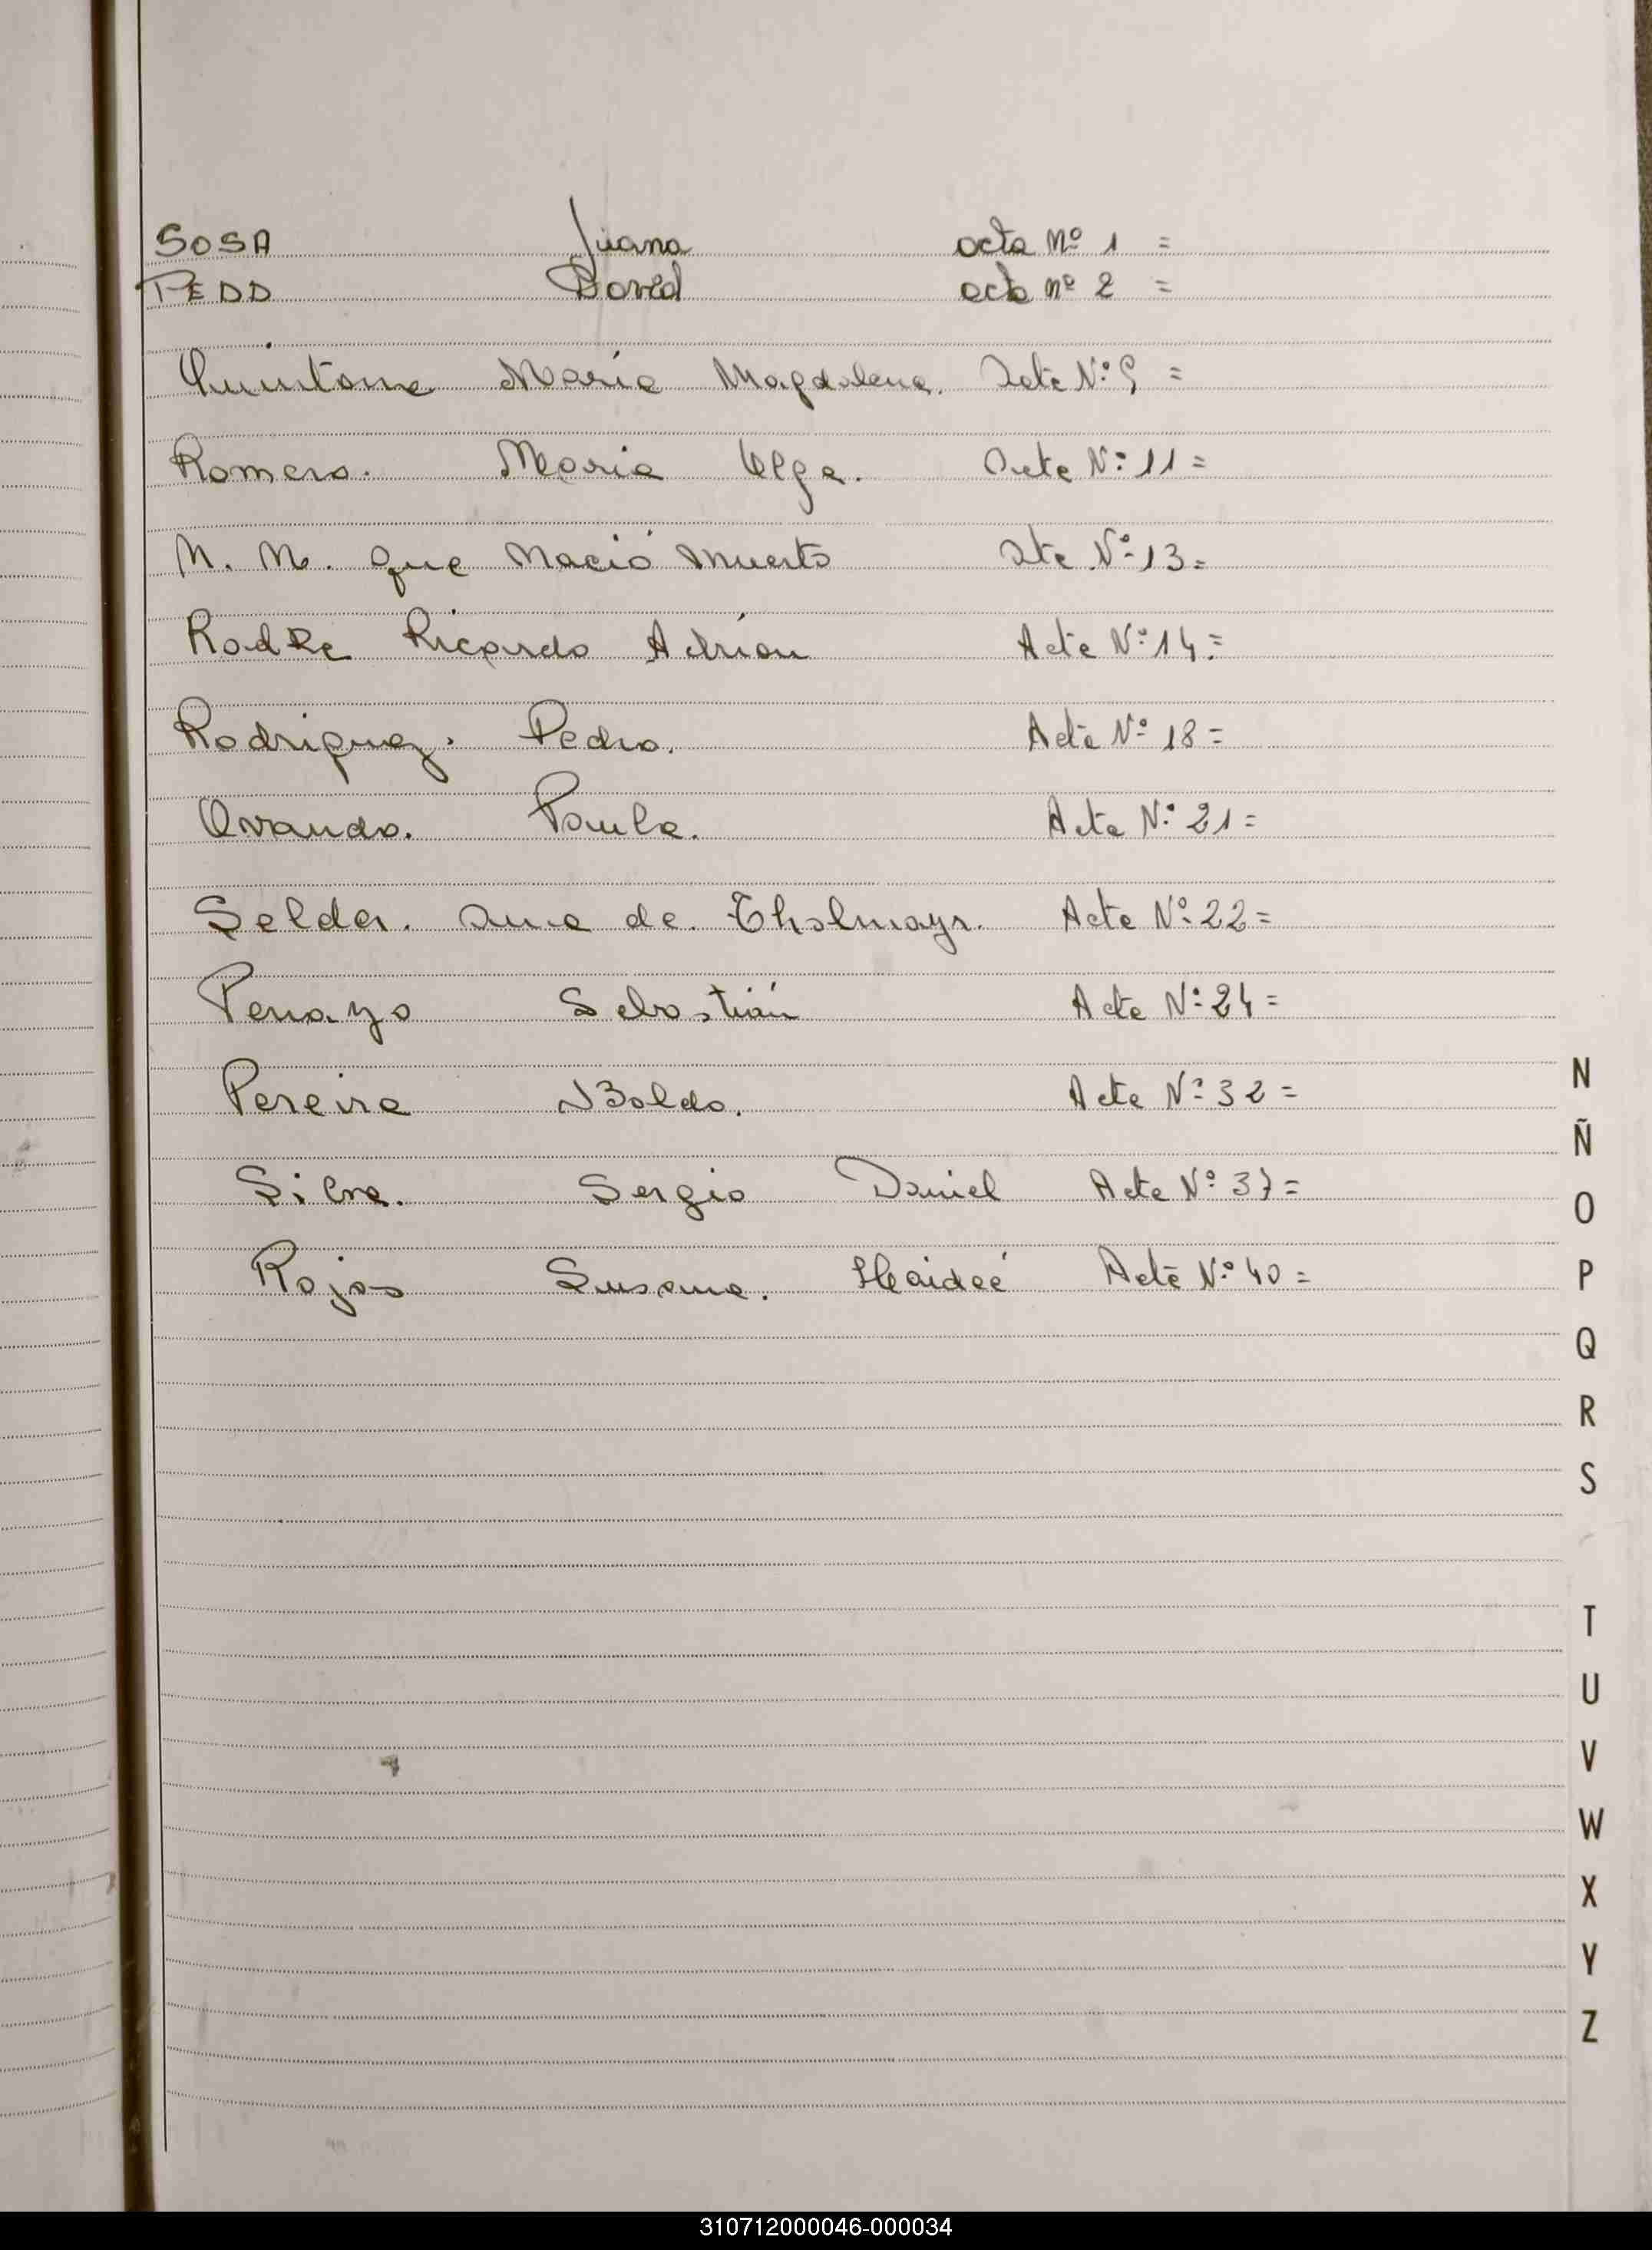 SOSA Juana acta nº 1 =
PEDD David acta nº 2 =
Quintana María Magdalena. Acta Nº 9 =
Romero. Maria Olga. Acta Nº 11 =
N. N. que nació muerto Acta Nº 13 =
Radke Ricardo Adrián Acta Nº 14 =
Rodriguez. Pedro. Acta Nº 18 =
Ovando. Paula. Acta Nº 21 =
Selder. Ana de Tholmayr. Acta Nº 22 =
Penayo Sebastián Acta Nº 24 =
Pereira Acta Nº 32 =
Silva. Sergio Daniel Acta Nº 37 =
Rojas Susana. Haideé Acta Nº 40 =
N
Ñ
O
P
Q
R
S
T
U
V
W
X
Y
Z
310712000046-000034